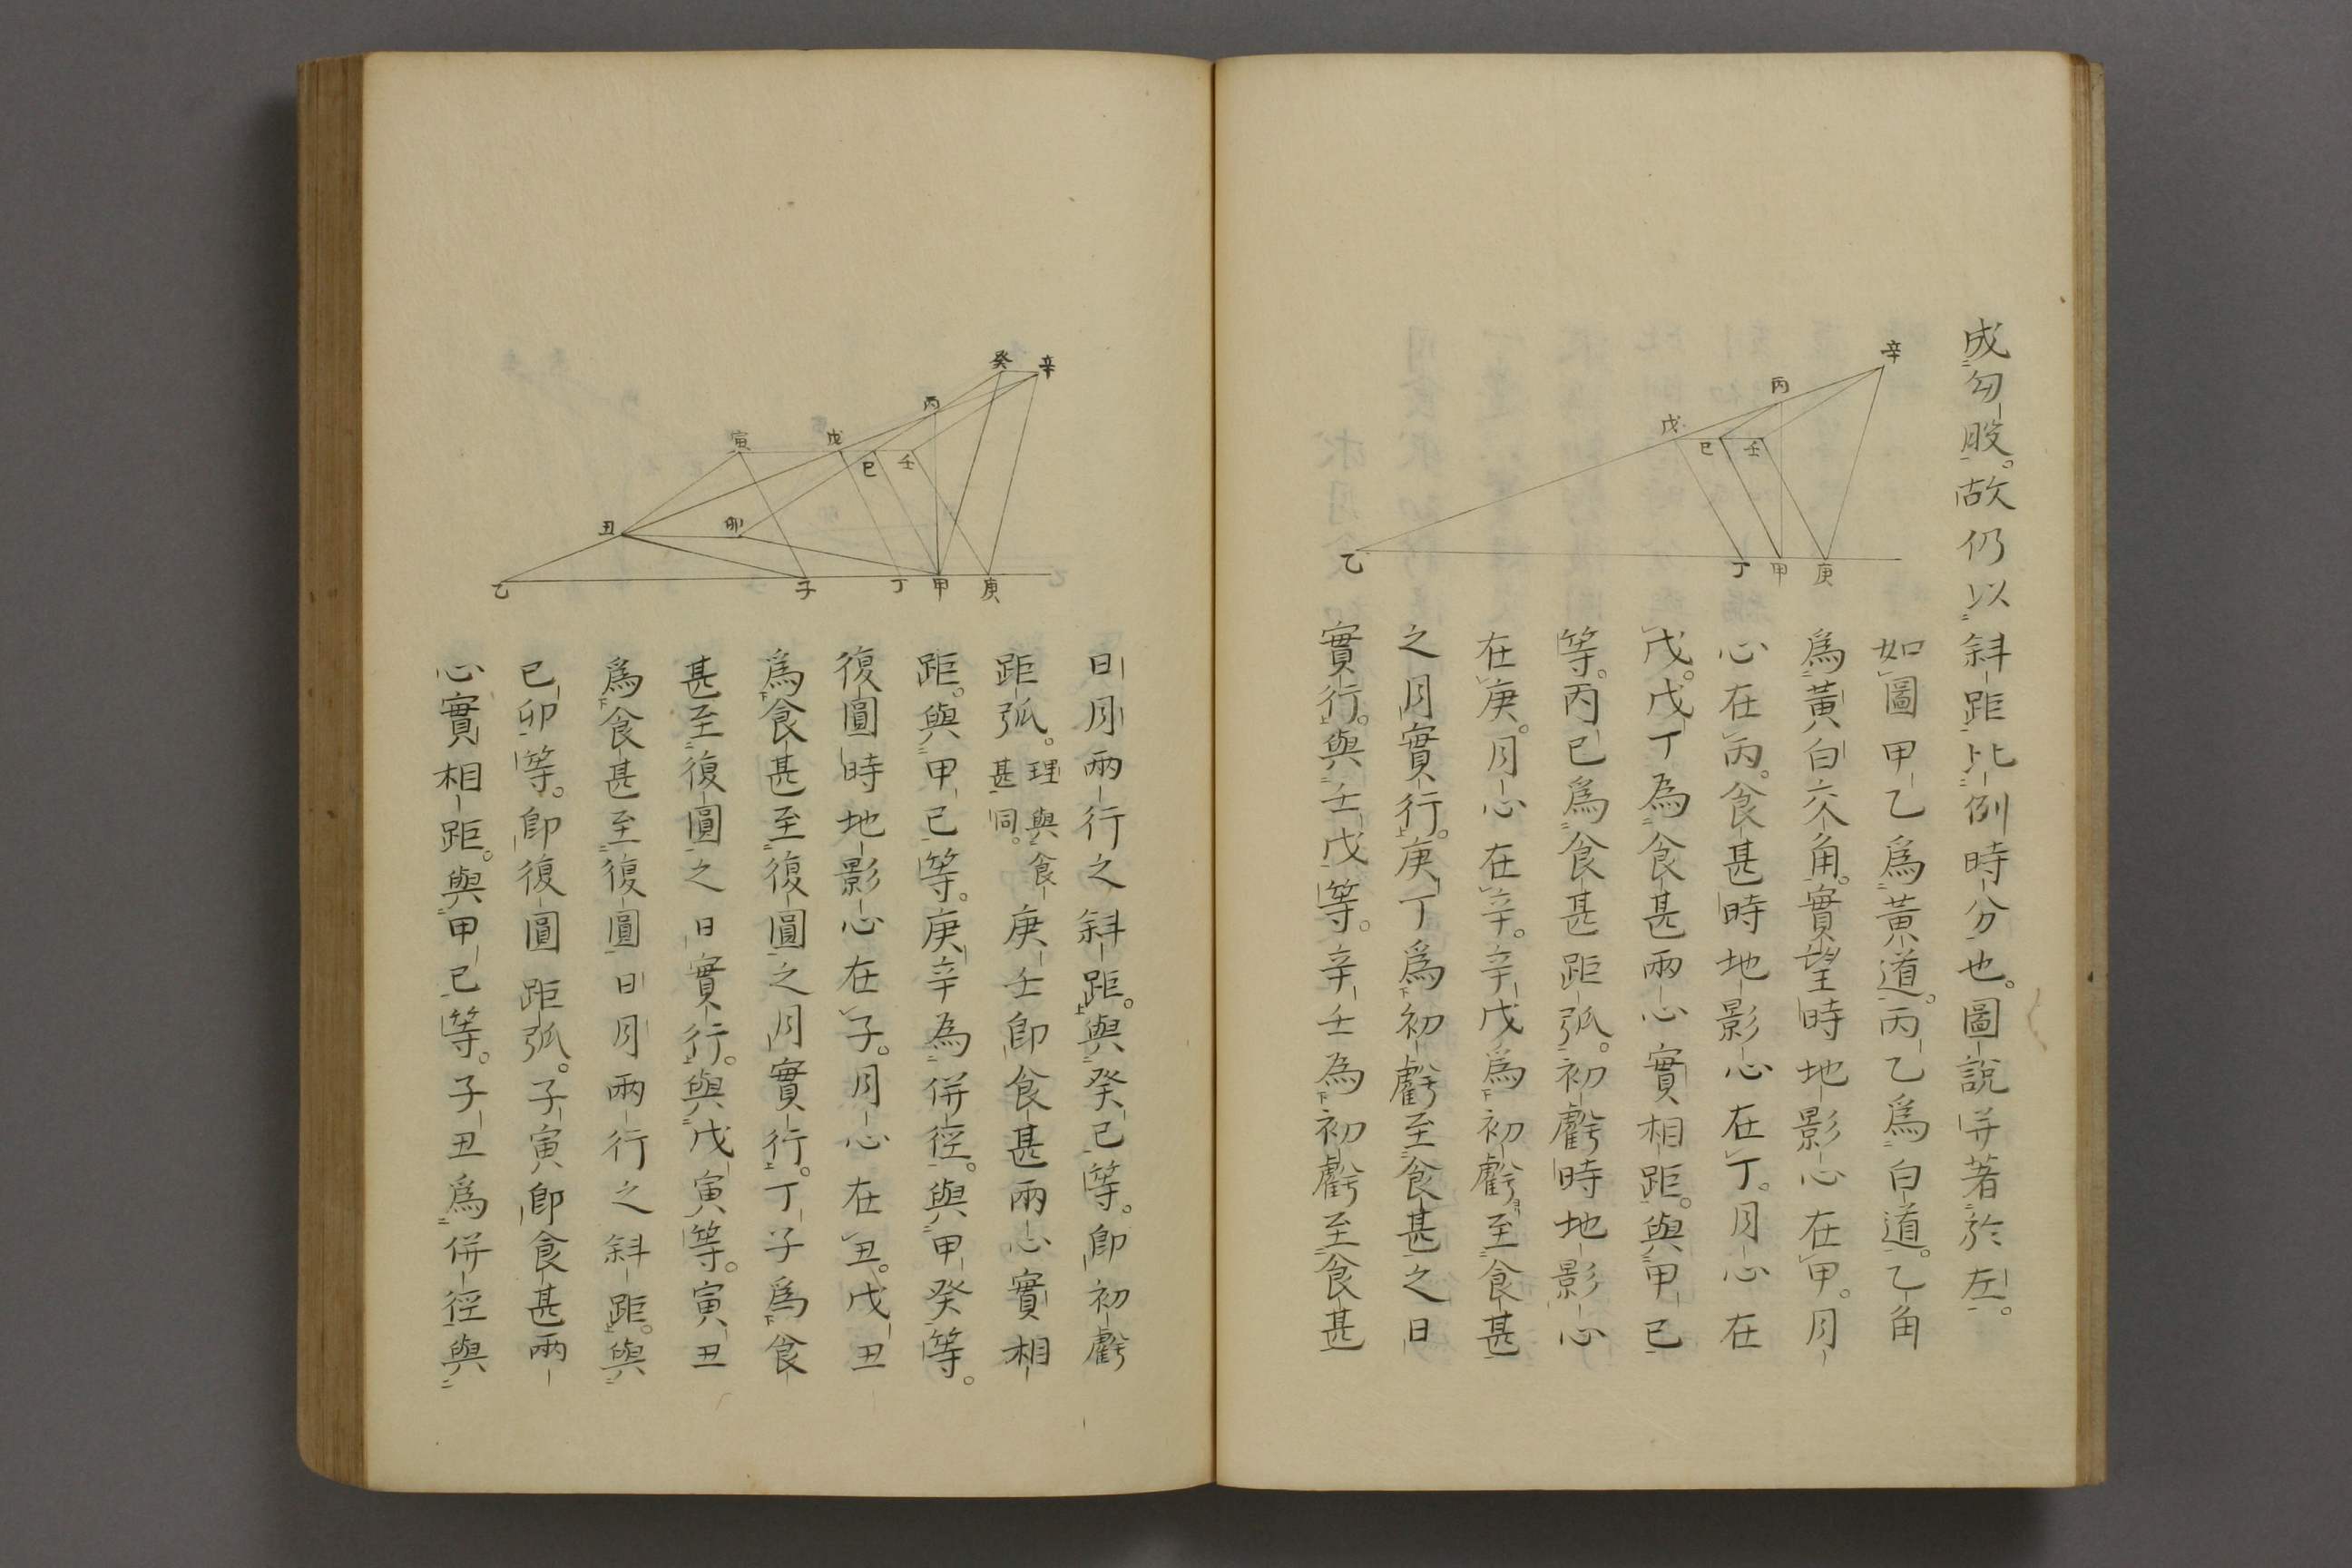 成勾股。故仍以斜距比例時分也。圖說并著於左。
辛
丙
戊
巳
壬
乙
丁
甲
庚
如圖甲乙爲黃道。丙乙爲白道。乙角
爲黃白交角。實望時地影心在甲。月
心在丙。食甚時地影心在丁。月心在
戊。戊丁為食甚兩心實相距。與甲已
等。丙已爲食甚距弧。初虧時地影心
在庚。月心在辛。辛戊爲初虧至食甚
之月實行。庚丁爲初虧至食甚之日
實行。與壬戊等。辛壬為初虧至食甚
癸
辛
丙
寅
戊
巳
壬
丑
卯
乙
子
丁
甲
庚
日月兩行之斜距。與癸已等。卽初虧
距弧。理與食甚同。庚壬卽食甚兩心實相
距。與甲已等。庚辛為併徑。與甲癸等。
復圓時地影心在子。月心在丑。戊丑
爲食甚至復圓之月實行。丁子爲食
甚至復圓之日實行。與戊寅等。寅丑
爲食甚至復圓日月兩行之斜距。與
已卯等。卽復圓距弧。子寅卽食甚兩
心實相距。與甲已等。子丑爲併徑與